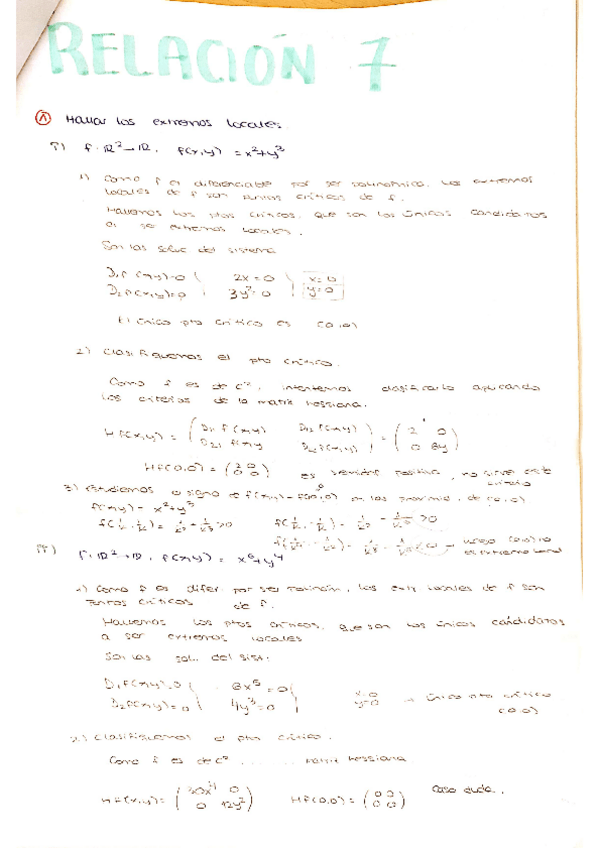 RELACIÓN 7
① Hallar los extremos locales.
i) f: ℝ² → ℝ, f(x,y) = x²+y³
1) Como f es diferenciable por ser polinómica, los extremos
locales de f son puntos críticos de f.
Hallemos los ptos críticos, que son los únicos candidatos
a ser extremos locales.
Son las soluc del sistema
D₁f(x,y)=0 } 2x=0 } x=0
D₂f(x,y)=0 } 3y²=0 } y=0
El único pto crítico es (0,0)
2) Clasifiquemos el pto crítico.
Como f es de C², intentemos clasificarlo aplicando
los criterios de la matriz hessiana.
Hf(x,y) = ( D₁₁ f(x,y) D₁₂ f(x,y) ; D₂₁ f(x,y) D₂₂ f(x,y) ) = ( 2 0 ; 0 6y )
Hf(0,0) = ( 2 0 ; 0 0 ) es semidef positiva, no sirve este
criterio
3) Estudiemos el signo de f(x,y) - f(0,0) en las proximid. de (0,0)
f(x,y) = x²+y³
luego (0,0) no
es extremo local
ii) f: ℝ² → ℝ, f(x,y) = x⁶+y⁴
1) Como f es difer por ser polinóm, los extr locales de f son
puntos críticos de f.
Hallemos los ptos críticos, que son los únicos candidatos
a ser extremos locales
Son las sol. del sist:
D₁f(x,y)=0 } 6x⁵=0 } x=0 → único pto crítico
D₂f(x,y)=0 } 4y³=0 } y=0 (0,0)
2) Clasifiquemos el pto crítico.
Como f es de C² ... ... matriz hessiana
Hf(x,y) = ( 30x⁴ 0 ; 0 12y² ) Hf(0,0) = ( 0 0 ; 0 0 ) Caso duda.